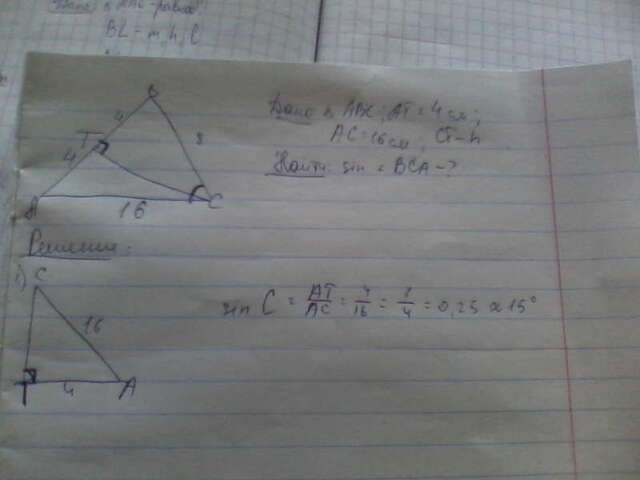 BL - m, h, l
B
4
T
4
8
A
16
C
Дано: Δ ABC; AT = 4 см;
AC = 16 см; CT - h
Найти: sin ∠ BCA - ?
Решение:
1) C
16
4
A
sin C = AT/AC = 4/16 = 1/4 = 0,25 ≈ 15°